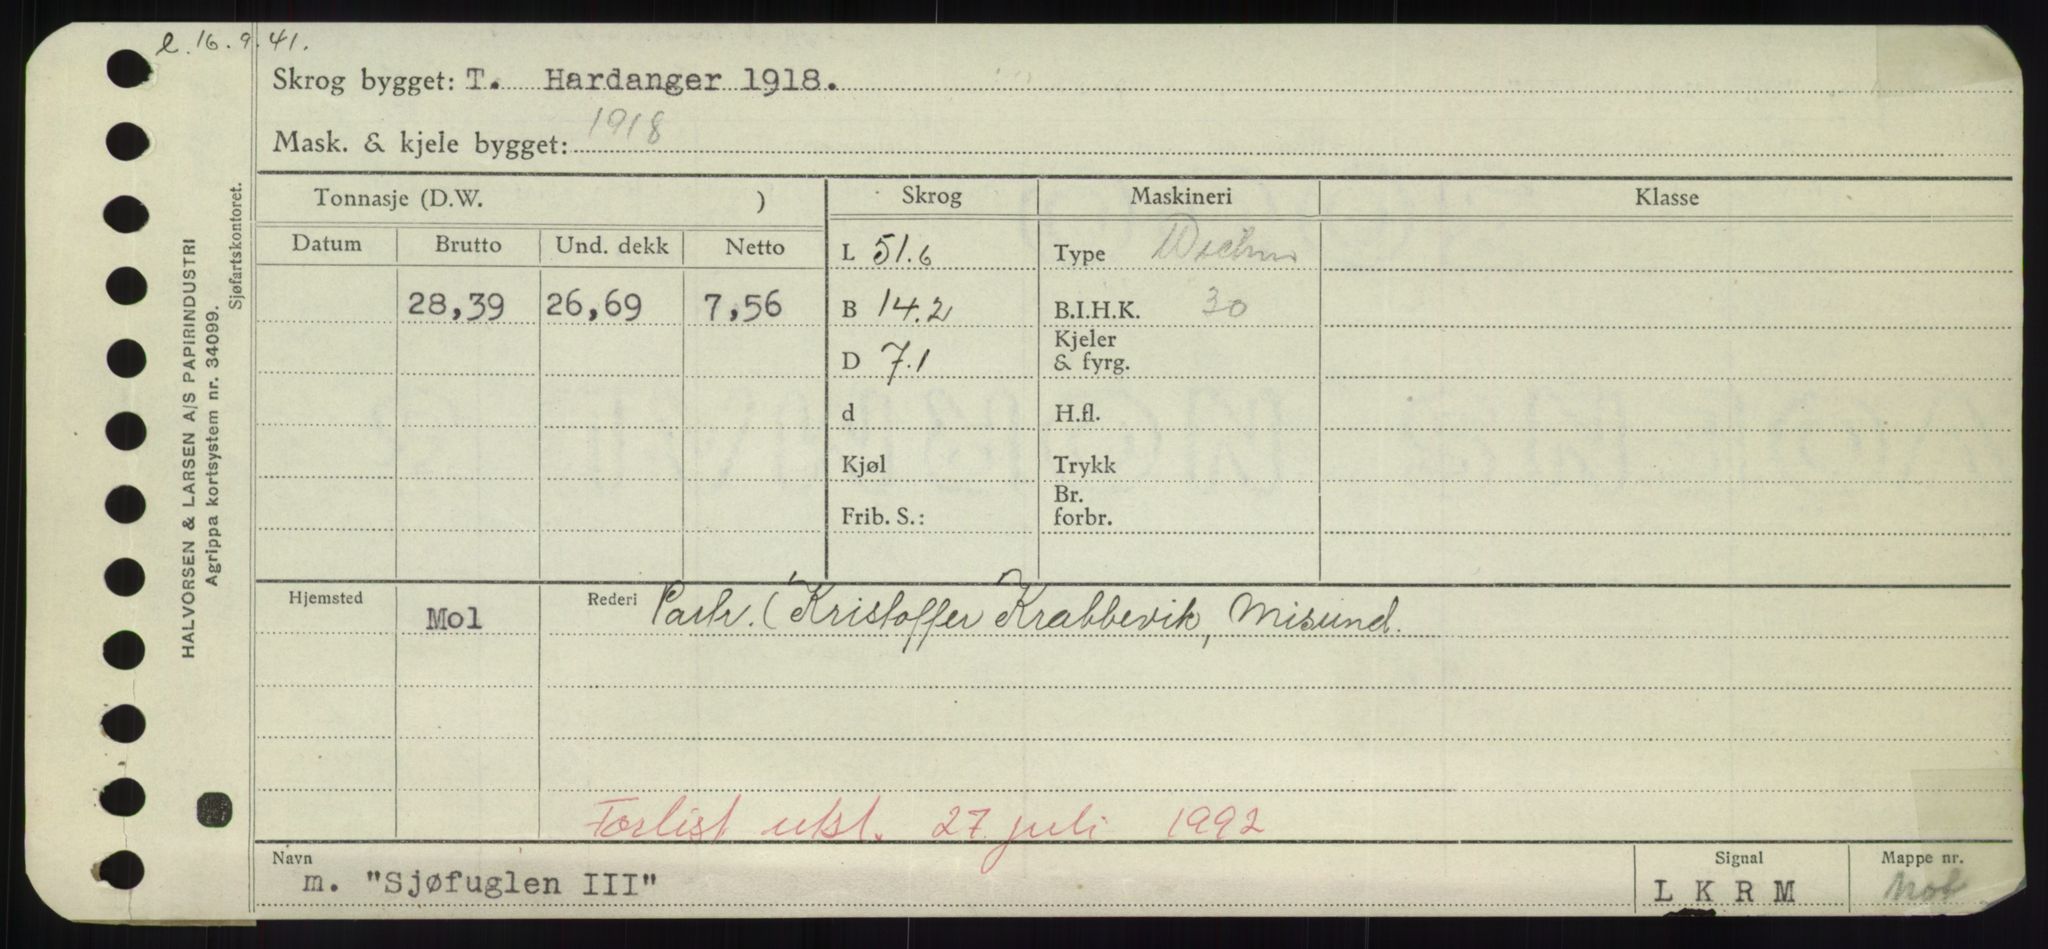 l. 16. 9. 41.
Skrog bygget: T. Hardanger 1918.
Mask. & kjele bygget: 1918
Tonnasje (D.W. ) Skrog Maskineri Klasse
Datum Brutto Und. dekk Netto
L 51.6 Type
28,39 26,69 7,56 B 14.2 B.I.H.K. 30
D 7.1 Kjeler & fyrg.
d H.fl.
Kjøl Trykk
Frib. S.: Br. forbr.
Hjemsted Mol Rederi Partr. (Kristoffer Krabbevik, Misund.
Forlist utst. 27. juli 1992
Navn Signal Mappe nr.
m. "Sjøfuglen III" L K R M Mol
HALVORSEN & LARSEN A/S PAPIRINDUSTRI
Agrippa kortsystem nr. 34099.
Sjøfartskontoret.